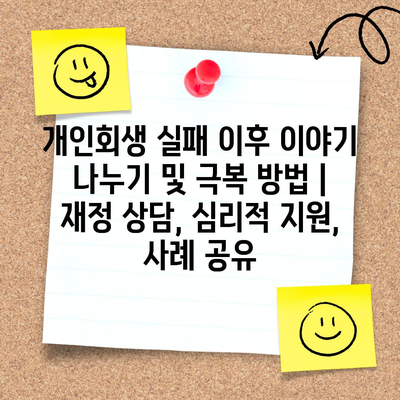 개인회생 실패 이후 이야기
나누기 및 극복 방법 |
재정 상담, 심리적 지원,
사례 공유